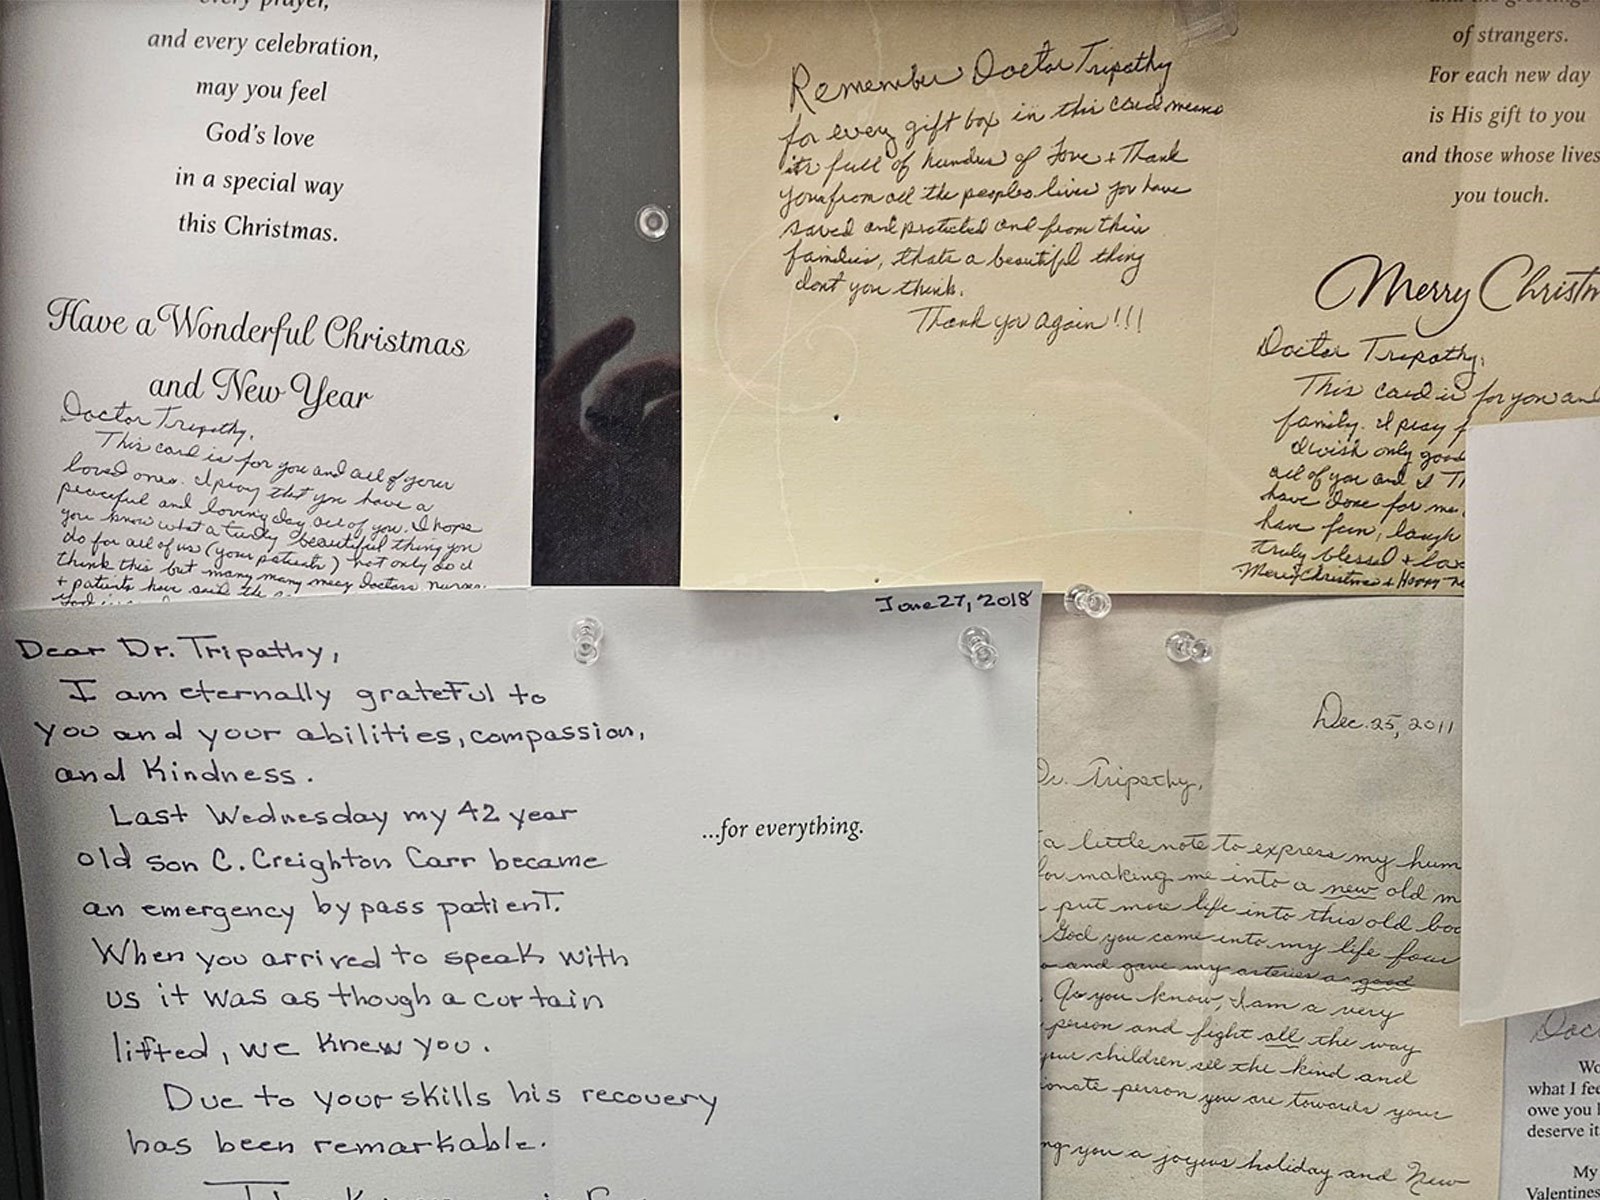 every prayer,
and every celebration,
may you feel
God's love
in a special way
this Christmas.
Have a Wonderful Christmas
and New Year
Doctor Tripathy,
This card is for you and all of your
loved ones. I pray that you have a
peaceful and loving day all of you. I hope
you know what a truly beautiful thing you
do for all of us (your patients) not only do I
think this but many many many doctors nurses
+ patients have said the
Remember Doctor Tripathy
for every gift box in this card means
its full of hundres of Love + Thank
you from all the peoples lives you have
saved and protected and from their
families, thats a beautiful thing
dont you think.
Thank you again!!!
and the greetings
of strangers.
For each new day
is His gift to you
and those whose lives
you touch.
Merry Christm
Doctor Tripathy,
This card is for you and
family. I pray f
I wish only good
all of you and I Th
have done for me
have fun, laugh
truly blessed + lov
Merry Christmas + Happy Ne
June 27, 2018
Dear Dr. Tripathy,
I am eternally grateful to
you and your abilities, compassion,
and kindness.
Last Wednesday my 42 year
old son C. Creighton Carr became
an emergency bypass patient.
When you arrived to speak with
us it was as though a curtain
lifted, we knew you.
Due to your skills his recovery
has been remarkable.
...for everything.
Dec. 25, 2011
Dr. Tripathy,
a little note to express my hum
for making me into a new old m
put more life into this old bod
God you came into my life four
and gave my arteries a good
As you know, I am a very
person and fight all the way
your children see the kind and
ionate person you are towards your
ng you a joyous holiday and New
Doc
Wo
what I fee
owe you l
deserve it
My
Valentines